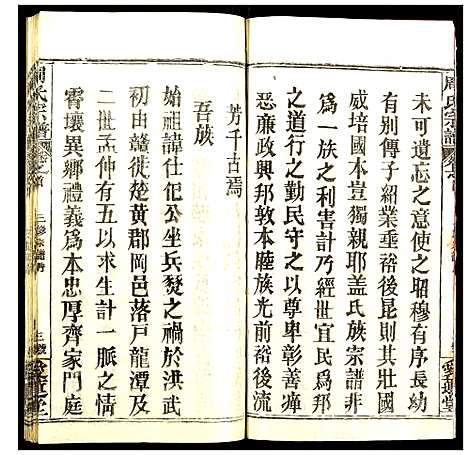 周氏宗譜
卷之首
未可遺忘之意使之昭穆有序長幼
有別傳子紹業垂裕後昆則其壯國
威培國本豈獨親耶蓋氏族宗譜非
爲一族之利害計乃經世宜民爲邦
之道行之勤民守之以尊卑彰善癉
惡廉政興邦敦本睦族光前裕後流
芳千古焉
吾族
始祖諱仕伲公坐兵燹之禍於洪武
初由贛徙楚黃郡岡邑落戶龍潭及
二世孟仲有五以求生計一脈之情
霄壤異鄉禮義爲本忠厚齊家門庭
周氏宗譜
卷之首
三修宗譜序
三
愛蓮堂